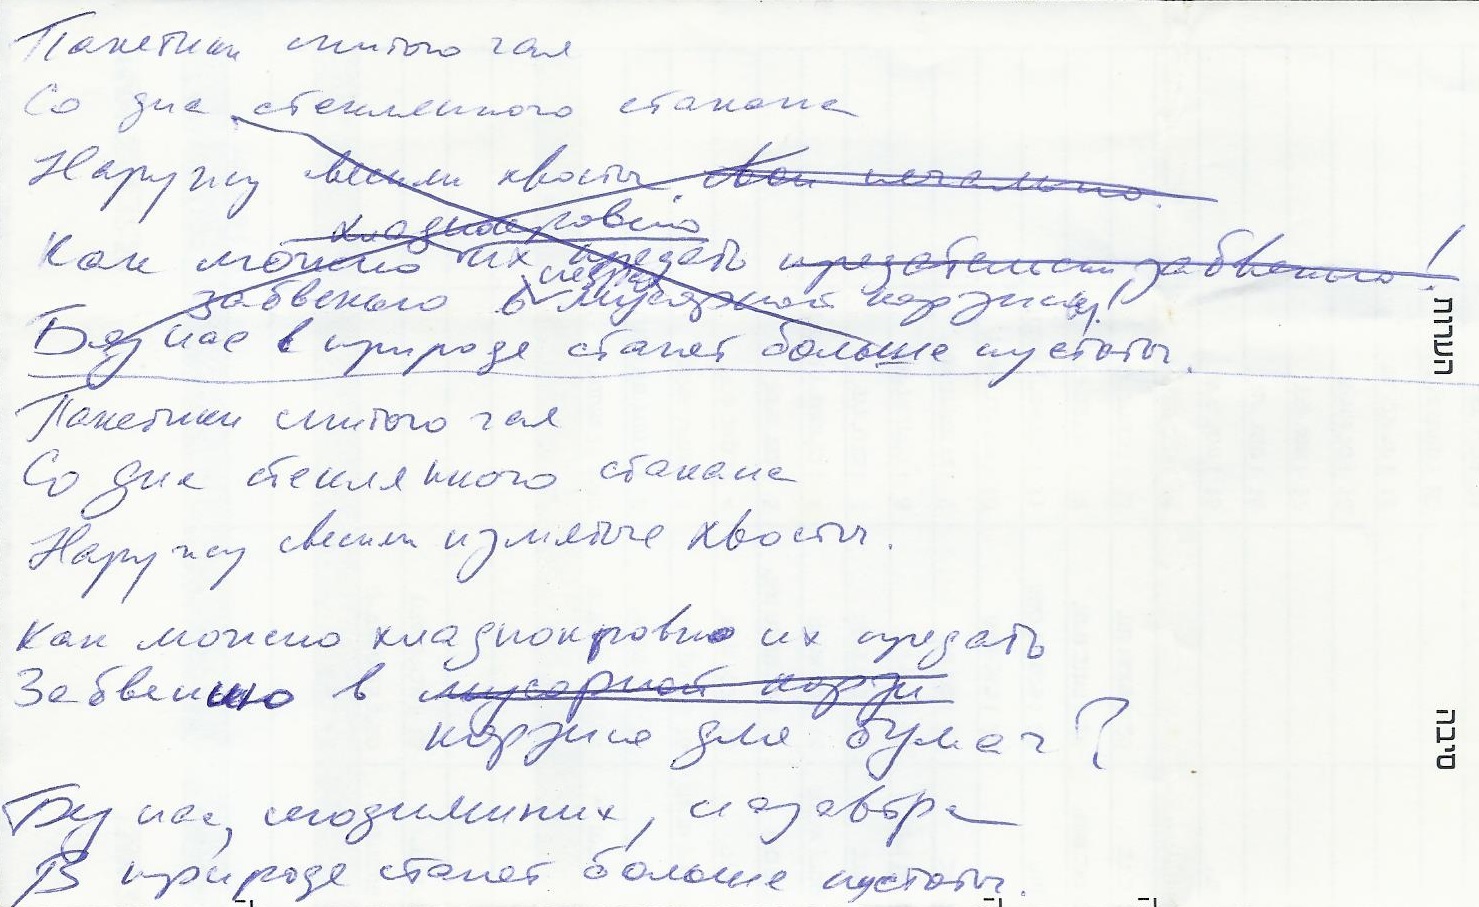 Пакетики спитого чая
Со дна стеклянного стакана
Наружу свесили хвосты. Как печально.
хладнокровно
Как можно их предать предательски забвенью!
забвенью в мусорной корзины!
Без нас в природе станет больше пустоты.
Пакетики спитого чая
Со дна стеклянного стакана
Наружу свесили измятые хвосты.
Как можно хладнокровно их предать
Забвенью в мусорной корзи
корзине для бумаг?
Без нас, людимых, назавтра
В природе станет больше пустоты.
הערות
סיבה